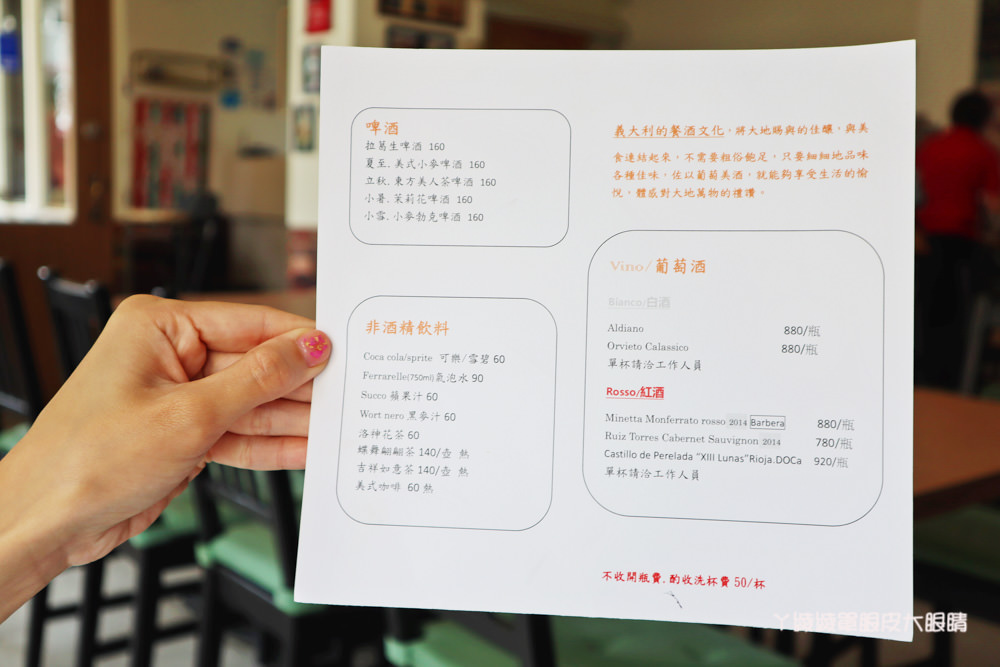 啤酒
拉葛生啤酒 160
夏至.美式小麥啤酒 160
立秋.東方美人茶啤酒 160
小暑.茉莉花啤酒 160
小雪.小麥勃克啤酒 160
非酒精飲料
Coca cola/sprite 可樂/雪碧 60
Ferrarelle(750ml)氣泡水 90
Succo 蘋果汁 60
Wort nero 黑麥汁 60
洛神花茶 60
蝶舞翩翩茶 140/壺 熱
吉祥如意茶 140/壺 熱
美式咖啡 60 熱
義大利的餐酒文化，將大地賜與的佳釀，與美
食連結起來，不需要粗俗飽足，只要細細地品味
各種佳味，佐以葡萄美酒，就能夠享受生活的愉
悅，體感對大地萬物的禮讚。
Vino/葡萄酒
Blanco/白酒
Aldiano 880/瓶
Orvieto Calassico 880/瓶
單杯請洽工作人員
Rosso/紅酒
Minetta Monferrato rosso 2014 Barbera 880/瓶
Ruiz Torres Cabernet Sauvignon 2014 780/瓶
Castillo de Perelada "XIII Lunas"Rioja.DOCa 920/瓶
單杯請洽工作人員
不收開瓶費,酌收洗杯費 50/杯
ㄚ綾綾單眼皮大眼睛